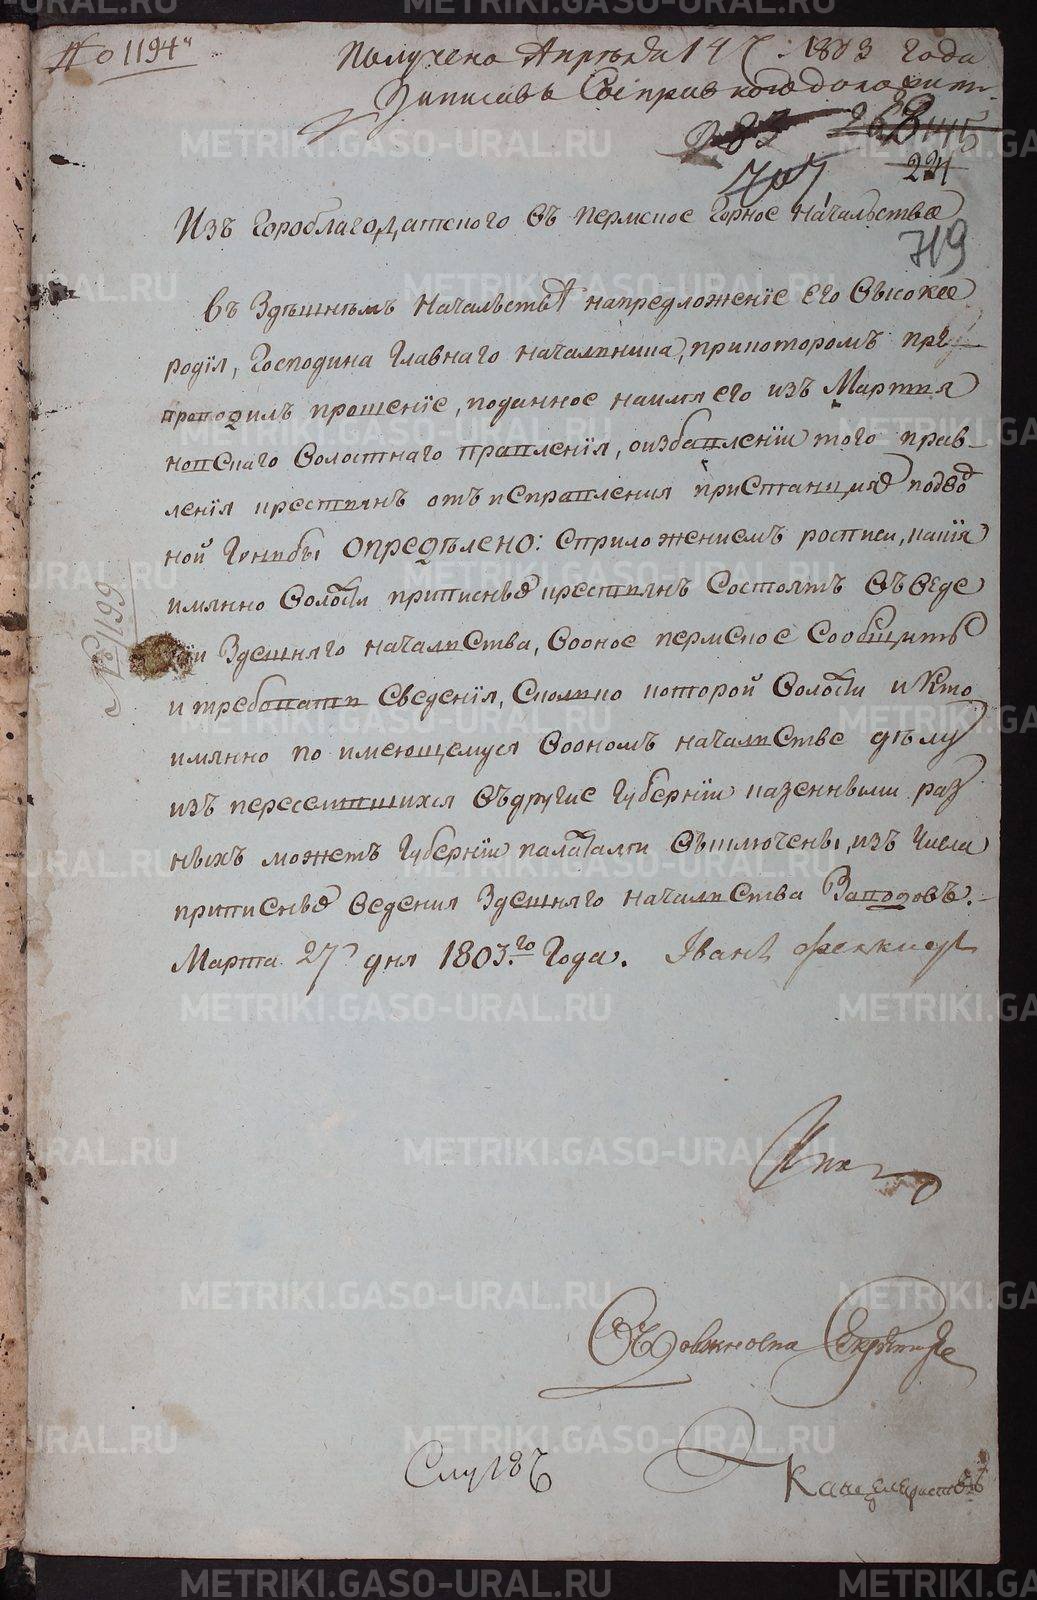 № 1194
Получено Апреля 14 1803 года
Записавъ
283
268
707 224
Изъ Гороблагодатского въ пермское Горное начальство
719
Въ Здешнемъ Начальстве напредложение Его Высокоб
родія, Господина Главнаго началника, прикоторомъ пре
проводилъ прошеніе, поданное наимя его изъ Мартья
новскаго Волостнаго правленія, оизбавленіи того прав
ленія крестьянъ отъ исправления пристанцияхъ подвод
ной Гоньбы ОПРЕДѢЛЕНО: Сприложениемъ росписи, какія
имянно Волости приписныхъ крестьянъ Состоятъ Въ Веде
ніи Здешняго началства, Воное пермское Сообщить
и требовать Сведенія, Сколко которой Волости и Кто
имянно по имеющемуся Воономъ началстве делу
изъ переселившихся Вдругие Губерніи казенными раз
ныхъ можетъ Губерніи палатами Выключены, изъ Числа
приписныхъ ведения Здешняго началства Заводовъ.
Марта 27 дня 1803.го Года. Іванъ
№ 1199
Секретарь
Канцеляристъ